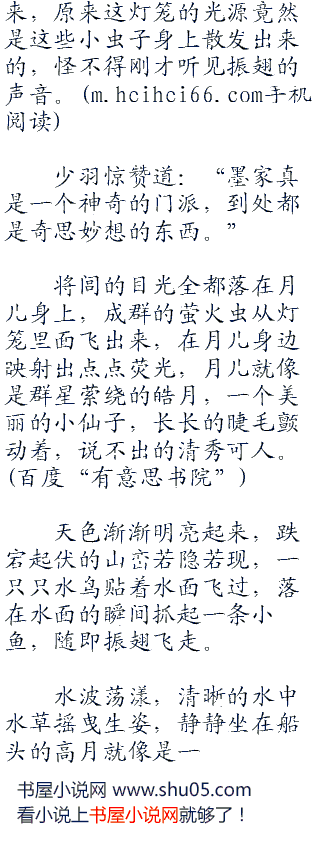 来，原来这灯笼的光源竟然
是这些小虫子身上散发出来
的，怪不得刚才听见振翅的
声音。(m.hcihci66.com手机
阅读)
少羽惊赞道：“墨家真
是一个神奇的门派，到处都
是奇思妙想的东西。”
将闾的目光全都落在月
儿身上，成群的萤火虫从灯
笼里面飞出来，在月儿身边
映射出点点荧光，月儿就像
是群星萦绕的皓月，一个美
丽的小仙子，长长的睫毛颤
动着，说不出的清秀可人。
(百度“有意思书院”)
天色渐渐明亮起来，跌
宕起伏的山峦若隐若现，一
只只水鸟贴着水面飞过，落
在水面的瞬间抓起一条小
鱼，随即振翅飞走。
水波荡漾，清晰的水中
水草摇曳生姿，静静坐在船
头的高月就像是一
书屋小说网 www.shu05.com
看小说上书屋小说网就够了！